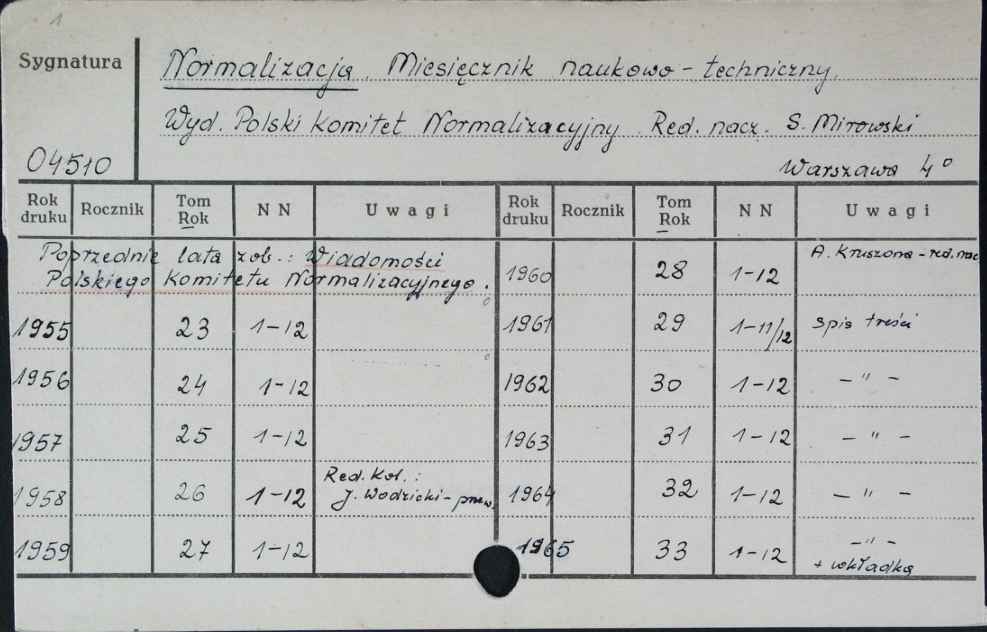 1
Sygnatura
04510
Normalizacja. Miesięcznik naukowo-techniczny.
Wyd. Polski Komitet Normalizacyjny. Red. nacz. S. Mirowski
Warszawa 4°
Rok druku Rocznik Tom Rok NN Uwagi Rok druku Rocznik Tom Rok NN Uwagi
Poprzednie lata zob.: Wiadomości
Polskiego Komitetu Normalizacyjnego.
1955 23 1-12
1956 24 1-12
1957 25 1-12
1958 26 1-12 Red. Kol.:
J. Wodzicki - przew.
1959 27 1-12
1960 28 1-12 A. Kruszona - red. nac
1961 29 1-11/12 spis treści
1962 30 1-12 - " -
1963 31 1-12 - " -
1964 32 1-12 - " -
1965 33 1-12 - " -
+ wkładka